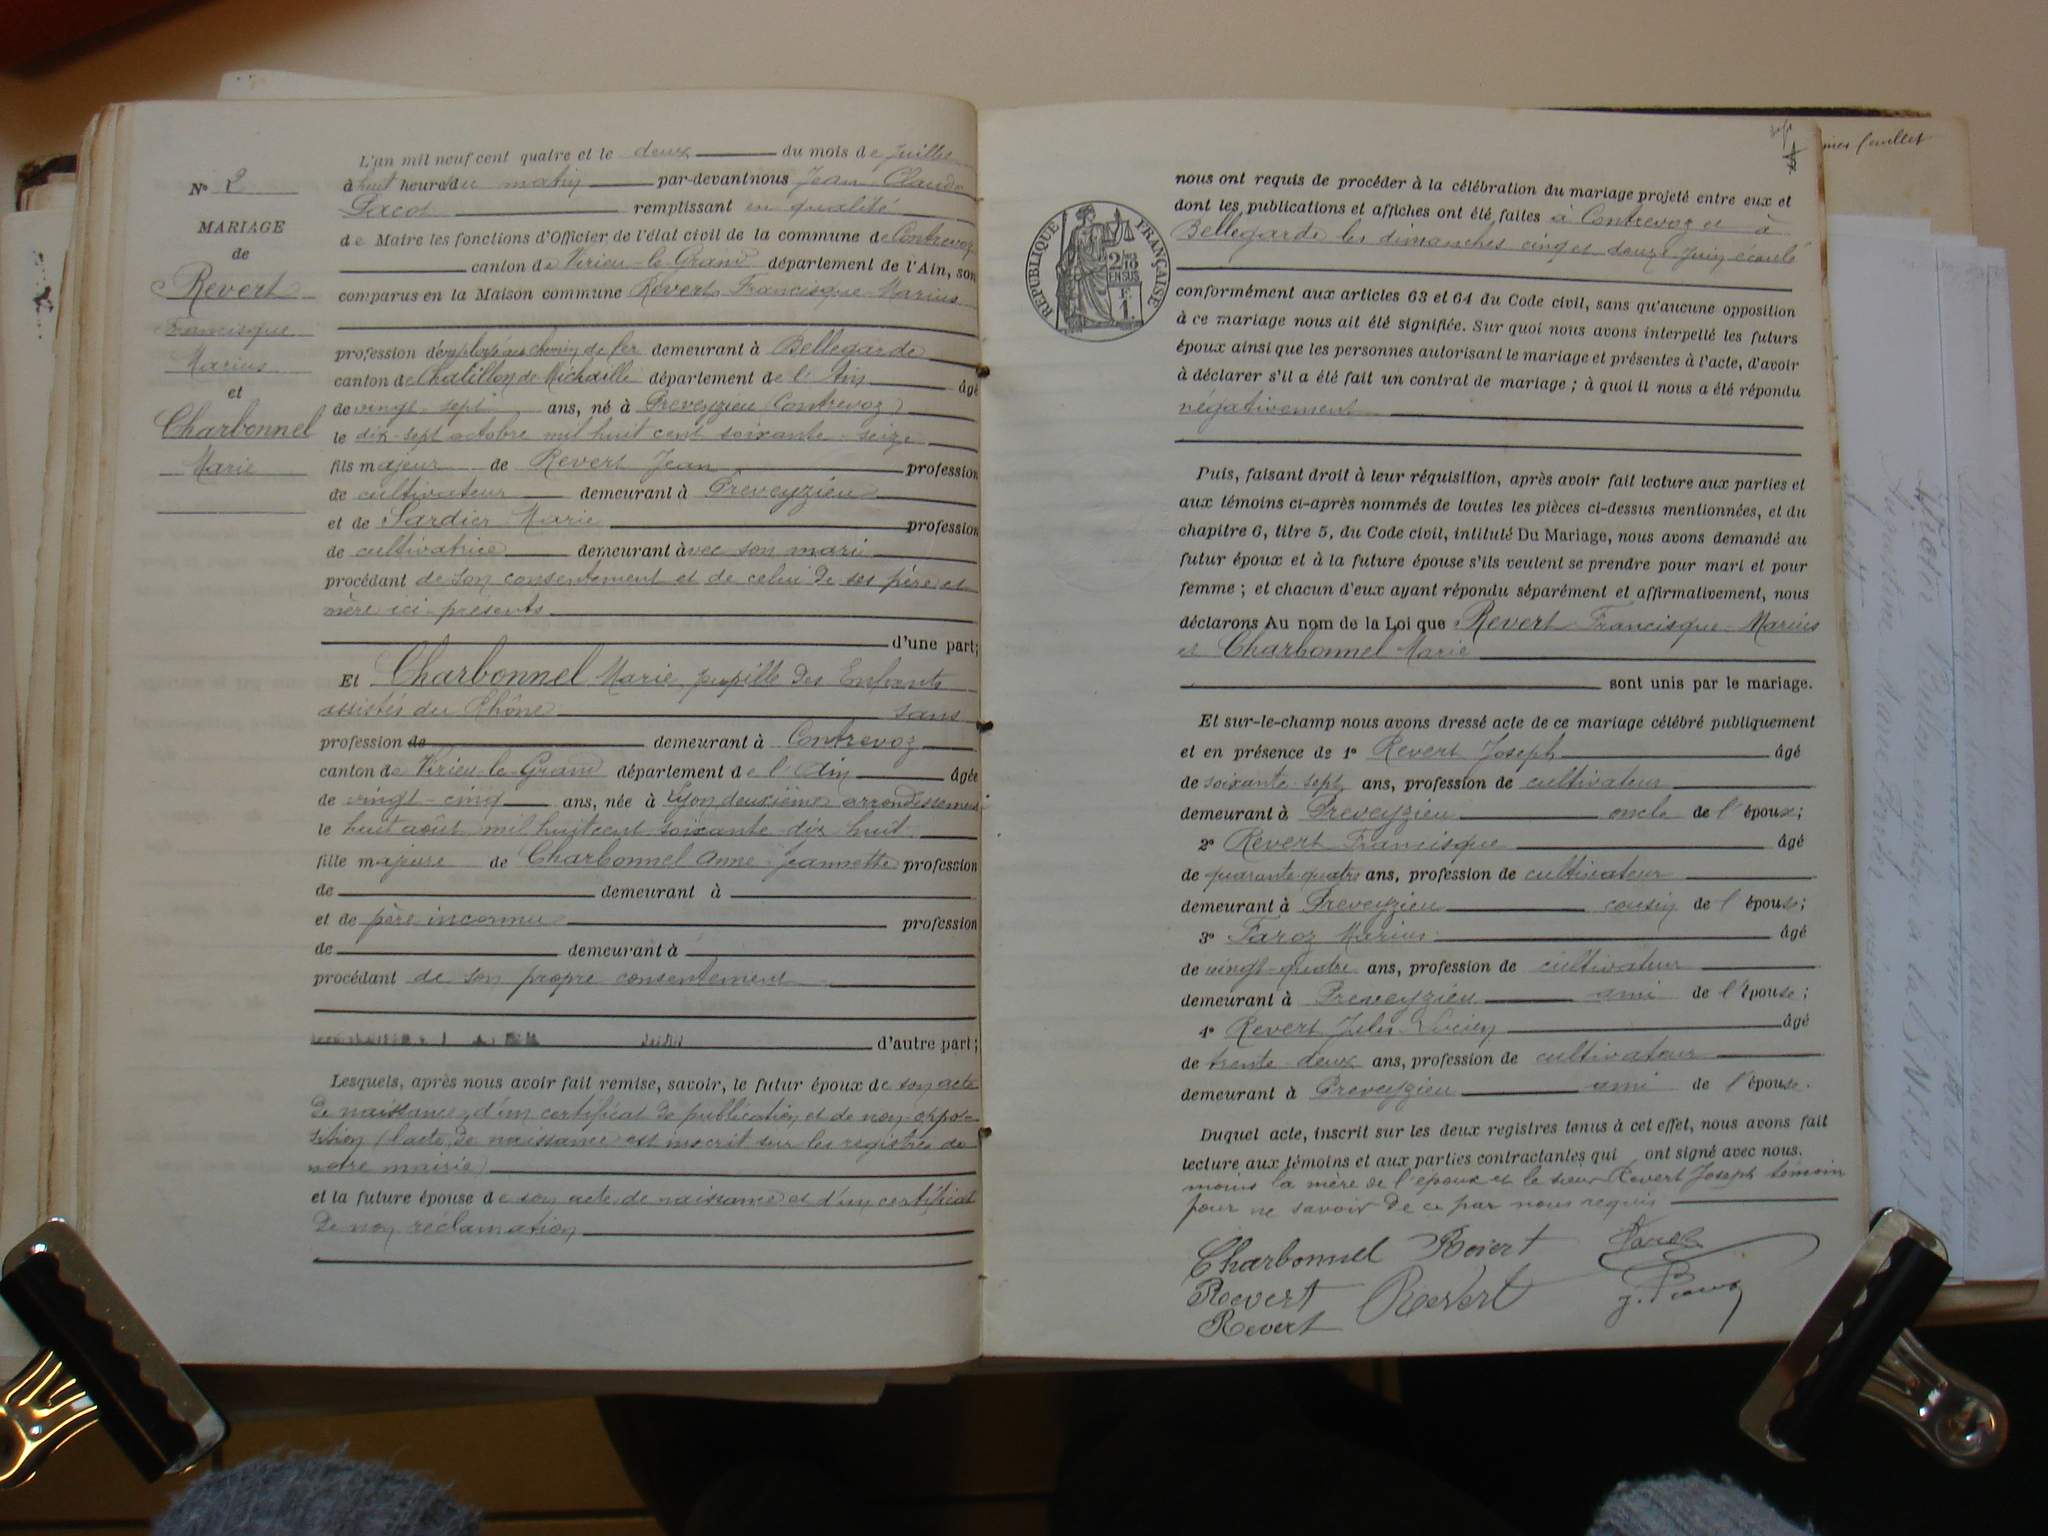 N° 2
MARIAGE
de
Revert
Francisque
Marius
et
Charbonnel
Marie
L'an mil neuf cent quatre et le deux du mois de juillet
à huit heures du matin par-devant nous Jean Claude
remplissant en qualité
de Maire les fonctions d'Officier de l'état civil de la commune de Contrevoz
canton de Virieu-le-Grand département de l'Ain, son
comparus en la Maison commune Revert Francisque Marius
profession d'employé au chemin de fer demeurant à Bellegarde
canton de Chatillon de Michaille département de l'Ain âgé
de vingt-sept ans, né à Preveyzieu (Contrevoz)
le dix-sept octobre mil huit cent soixante-seize
fils majeur de Revert Jean profession
de cultivateur demeurant à Preveyzieu
et de Sardier Marie profession
de cultivatrice demeurant avec son mari
procédant de son consentement et de celui de ses père et
mère ici-présents
d'une part;
Et Charbonnel Marie, pupille des Enfants
assistés du Rhône sans
profession de demeurant à Contrevoz
canton de Virieu-le-Grand département de l'Ain âgée
de vingt-cinq ans, née à Lyon deuxième arrondissement
le huit août mil huit cent soixante-dix-huit
fille majeure de Charbonnel Anne Jeannette profession
de demeurant à
et de père inconnu profession
de demeurant à
procédant de son propre consentement
d'autre part;
Lesquels, après nous avoir fait remise, savoir, le futur époux de son acte
de naissance, d'un certificat de publication et de non-oppo-
sition (l'acte de naissance est inscrit sur les registres de
notre mairie)
et la future épouse de son acte de naissance et d'un certificat
de non réclamation
mier feuillet
RÉPUBLIQUE FRANÇAISE
EN SUS
nous ont requis de procéder à la célébration du mariage projeté entre eux et
dont les publications et affiches ont été faites à Contrevoz et à
Bellegarde les dimanches cinq et douze juin écoulé
conformément aux articles 63 et 64 du Code civil, sans qu'aucune opposition
à ce mariage nous ait été signifiée. Sur quoi nous avons interpellé les futurs
époux ainsi que les personnes autorisant le mariage et présentes à l'acte, d'avoir
à déclarer s'il a été fait un contrat de mariage; à quoi il nous a été répondu
négativement
Puis, faisant droit à leur réquisition, après avoir fait lecture aux parties et
aux témoins ci-après nommés de toutes les pièces ci-dessus mentionnées, et du
chapitre 6, titre 5, du Code civil, intitulé Du Mariage, nous avons demandé au
futur époux et à la future épouse s'ils veulent se prendre pour mari et pour
femme; et chacun d'eux ayant répondu séparément et affirmativement, nous
déclarons Au nom de la Loi que Revert Francisque-Marius
et Charbonnel Marie
sont unis par le mariage.
Et sur-le-champ nous avons dressé acte de ce mariage célébré publiquement
et en présence de 1° Revert Joseph âgé
de soixante-sept ans, profession de cultivateur
demeurant à Preveyzieu oncle de l'époux;
2° Revert Francisque âgé
de quarante-quatre ans, profession de cultivateur
demeurant à Preveyzieu cousin de l'épouse;
3° Faroz Marius âgé
de vingt-quatre ans, profession de cultivateur
demeurant à Preveyzieu ami de l'épouse;
4° Revert Jules Lucien âgé
de trente-deux ans, profession de cultivateur
demeurant à Preveyzieu ami de l'épouse.
Duquel acte, inscrit sur les deux registres tenus à cet effet, nous avons fait
lecture aux témoins et aux parties contractantes qui ont signé avec nous.
moins la mère de l'époux et le sieur Revert Joseph témoin
pour ne savoir de ce par nous requis
Charbonnel Revert Faroz
Revert Revert
Revert